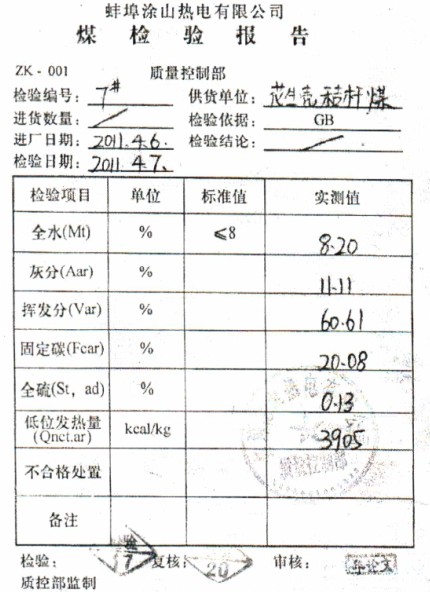 蚌埠涂山热电有限公司
煤检验报告
ZK-001 质量控制部
检验编号: 7# 供货单位: 花生壳秸秆煤
进货数量: / 检验依据: GB
进厂日期: 2011.4.6. 检验结论: /
检验日期: 2011.4.7、
检验项目 单位 标准值 实测值
全水(Mt) % ≤8 8.20
灰分(Aar) % 11.11
挥发分(Var) % 60.61
固定碳(Fcar) % 20.08
全硫(St，ad) % 0.13
低位发热量 kcal/kg 3905
(Qnct.ar)
不合格处置
备注
检验: 17 复核: 20 审核:
质控部监制
热电
质量控制部